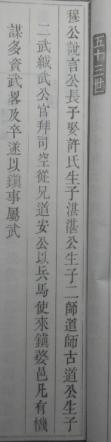 五十三世
穆公說言公長子娶許氏生子湛湛公生子二師道師古道公生子
二武鉞武公官拜司空從兄道安公以兵馬使來鎮婺邑凡有機
謀多資武畧及卒遂以鎮事屬武